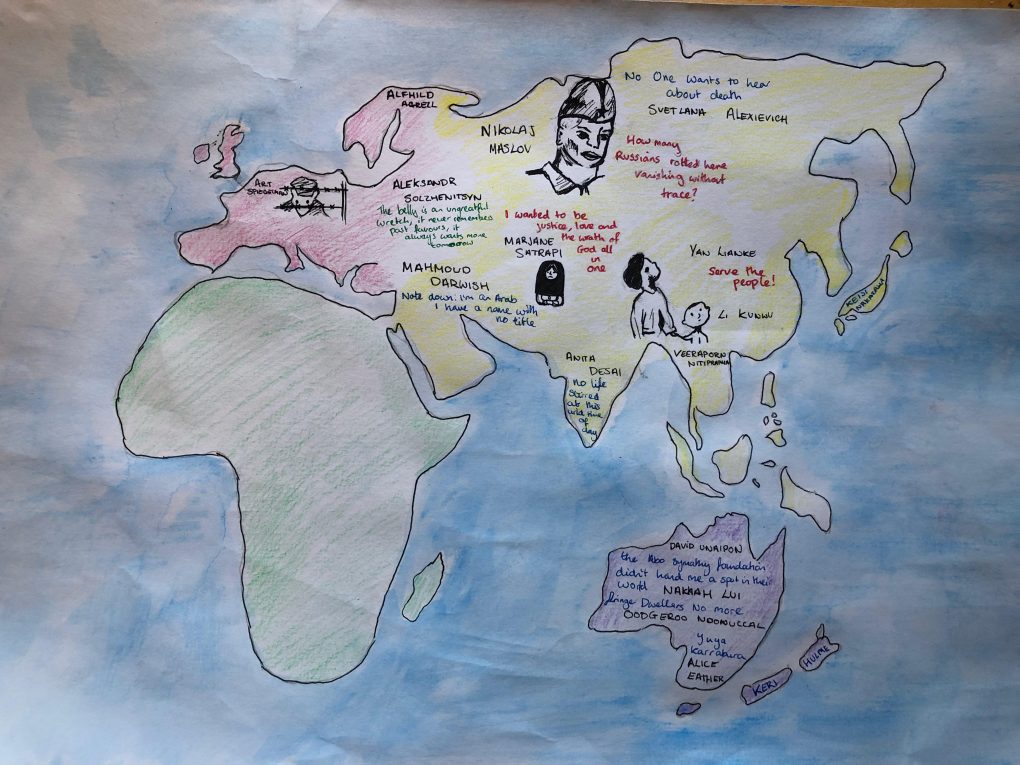 ALFHILD
AGRELL
No One wants to hear
about death
SVETLANA ALEXIEVICH
NIKOLAJ
MASLOV
How many
Russians rotted here
vanishing without
trace?
ART
SPIEGELMAN
ALEKSANDR
SOLZHENITSYN
The belly is an ungreatful
wretch, it never remembers
past favours, it
always wants more
tomorrow
I wanted to be
justice, love and
the wrath of
God all
in
one
MARJANE
SATRAPI
MAHMOUD
DARWISH
Note down: I'm an Arab
I have a name with
no title
YAN LIANKE
Serve the
people!
LI KUNWU
KEIJI
NAKAZAWA
VEERAPORN
NITIPRAPHA
ANITA
DESAI
No life
stirred
at this
time
of
day
DAVID UNAIPON
the Abo symathy foundation
didn't hand me a spot in their
world NAKKAH LUI
fringe Dwellers No more
OODGEROO NOONUCCAL
Yuya
Karrabura
ALICE
EATHER
KERI
HULME